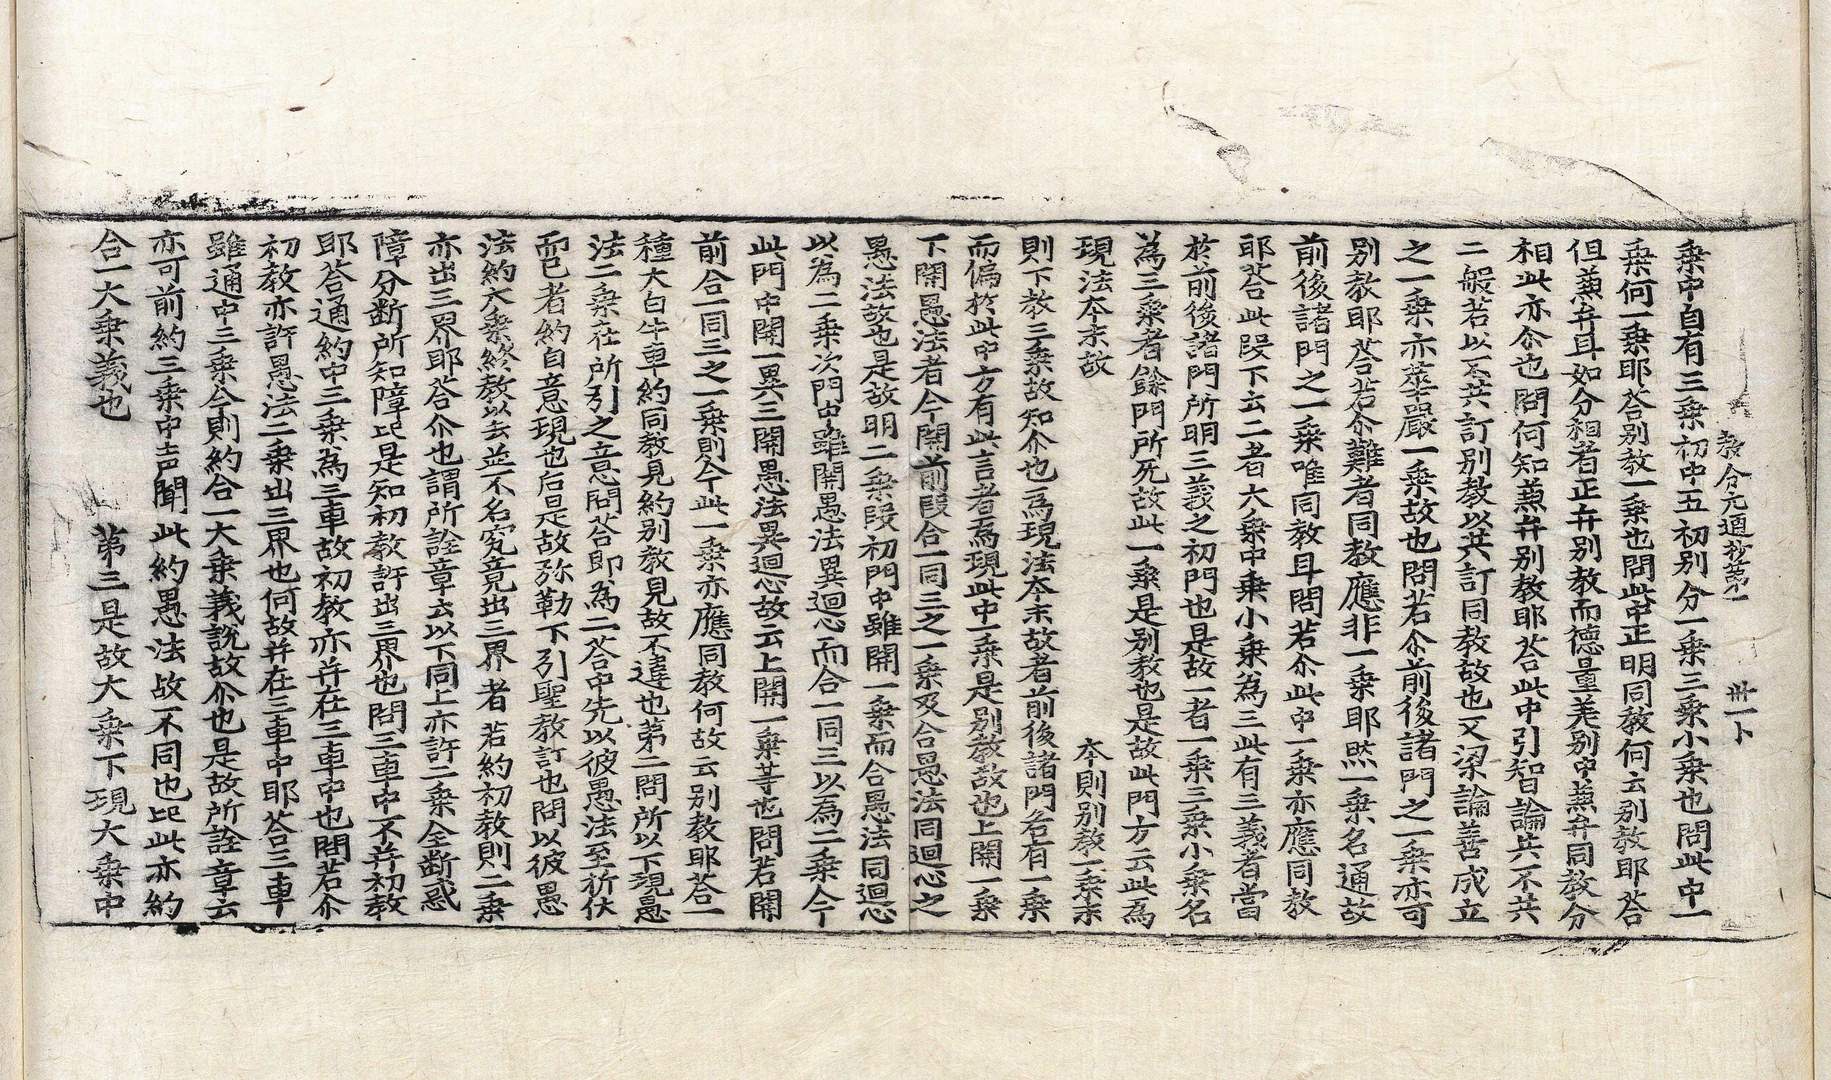 教分圓通抄第一　卅一卜
乗中自有三乗初中五初別分一乗三乗小乗也問此中一
乗何一乗耶荅別教一乗也問此中正明同教何云別教耶荅
但兼弁耳如分相者正弁別教而德量羙別中兼弁同教分
相此亦尒也問何知兼弁別教耶荅此中引智論共不共
二般若以不共訂別教以共訂同教故也又梁論善成立
之一乗亦華嚴一乗故也問若尒前後諸門之一乗亦可
別教耶荅若尒難者同教應非一乗耶然一乗名通故
前後諸門之一乗唯同教耳問若尒此中一乗亦應同教
耶荅此段下云二者大乗中乗小乗為三此有三義者當
於前後諸門所明三義之初門也是故一者一乗三乗小乗名
為三乗者餘門所无故此一乗是別教也是故此門方云此為
現法本末故　本則別教一乗末
則下教三乗故知尒也為現法本末故者前後諸門各有一乗
而偏於此中方有此言者為現此中一乗是別教故也上開一乗
下開愚法者今開前段合一同三之一乗及合愚法同迴心之
愚法故也是故明二乗段初門中雖開一乗而合愚法同迴心
以為二乗次門中雖開愚法異迴心而合一同三以為二乗今
此門中開一異三開愚法異迴心故云上開一乗等也問若開
前合一同三之一乗則今此一乗亦應同教何故云別教耶荅一
種大白牛車約同教見約別教見故不違也第二問所以下現愚
法二乗在所引之意問荅即為二荅中先以彼愚法至折伏
而已者約自意現也后是故弥勒下引聖教訂也問以彼愚
法約大乗終教以去並不名究竟出三界者若約初教則二乗
亦出三界耶荅尒也謂所詮章云以下同上亦許二乗全断惑
障分断所知障比是知初教許出三界也問三車中不弁初教
耶荅通約中三乗為三車故初教亦弁在三車中也問若尒
初教亦許愚法二乗出三界也何故弁在三車中耶荅三車
雖通中三乗今則約合一大乗義說故尒也是故所詮章云
亦可前約三乗中声聞此約愚法故不同也比此亦約
合一大乗義也　第三是故大乗下現大乗中